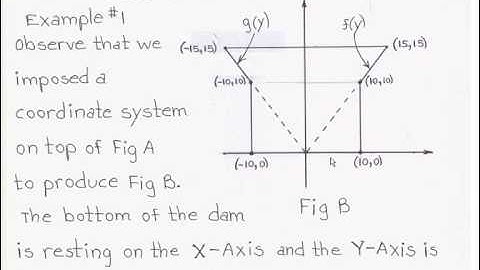 Example #1
Observe that we
imposed a
coordinate system
on top of Fig A
to produce Fig B.
The bottom of the dam
is resting on the X-Axis and the Y-Axis is
g(y)
f(y)
(-15,15)
(15,15)
(-10,10)
(10,10)
(-10,0)
(10,0)
Fig B